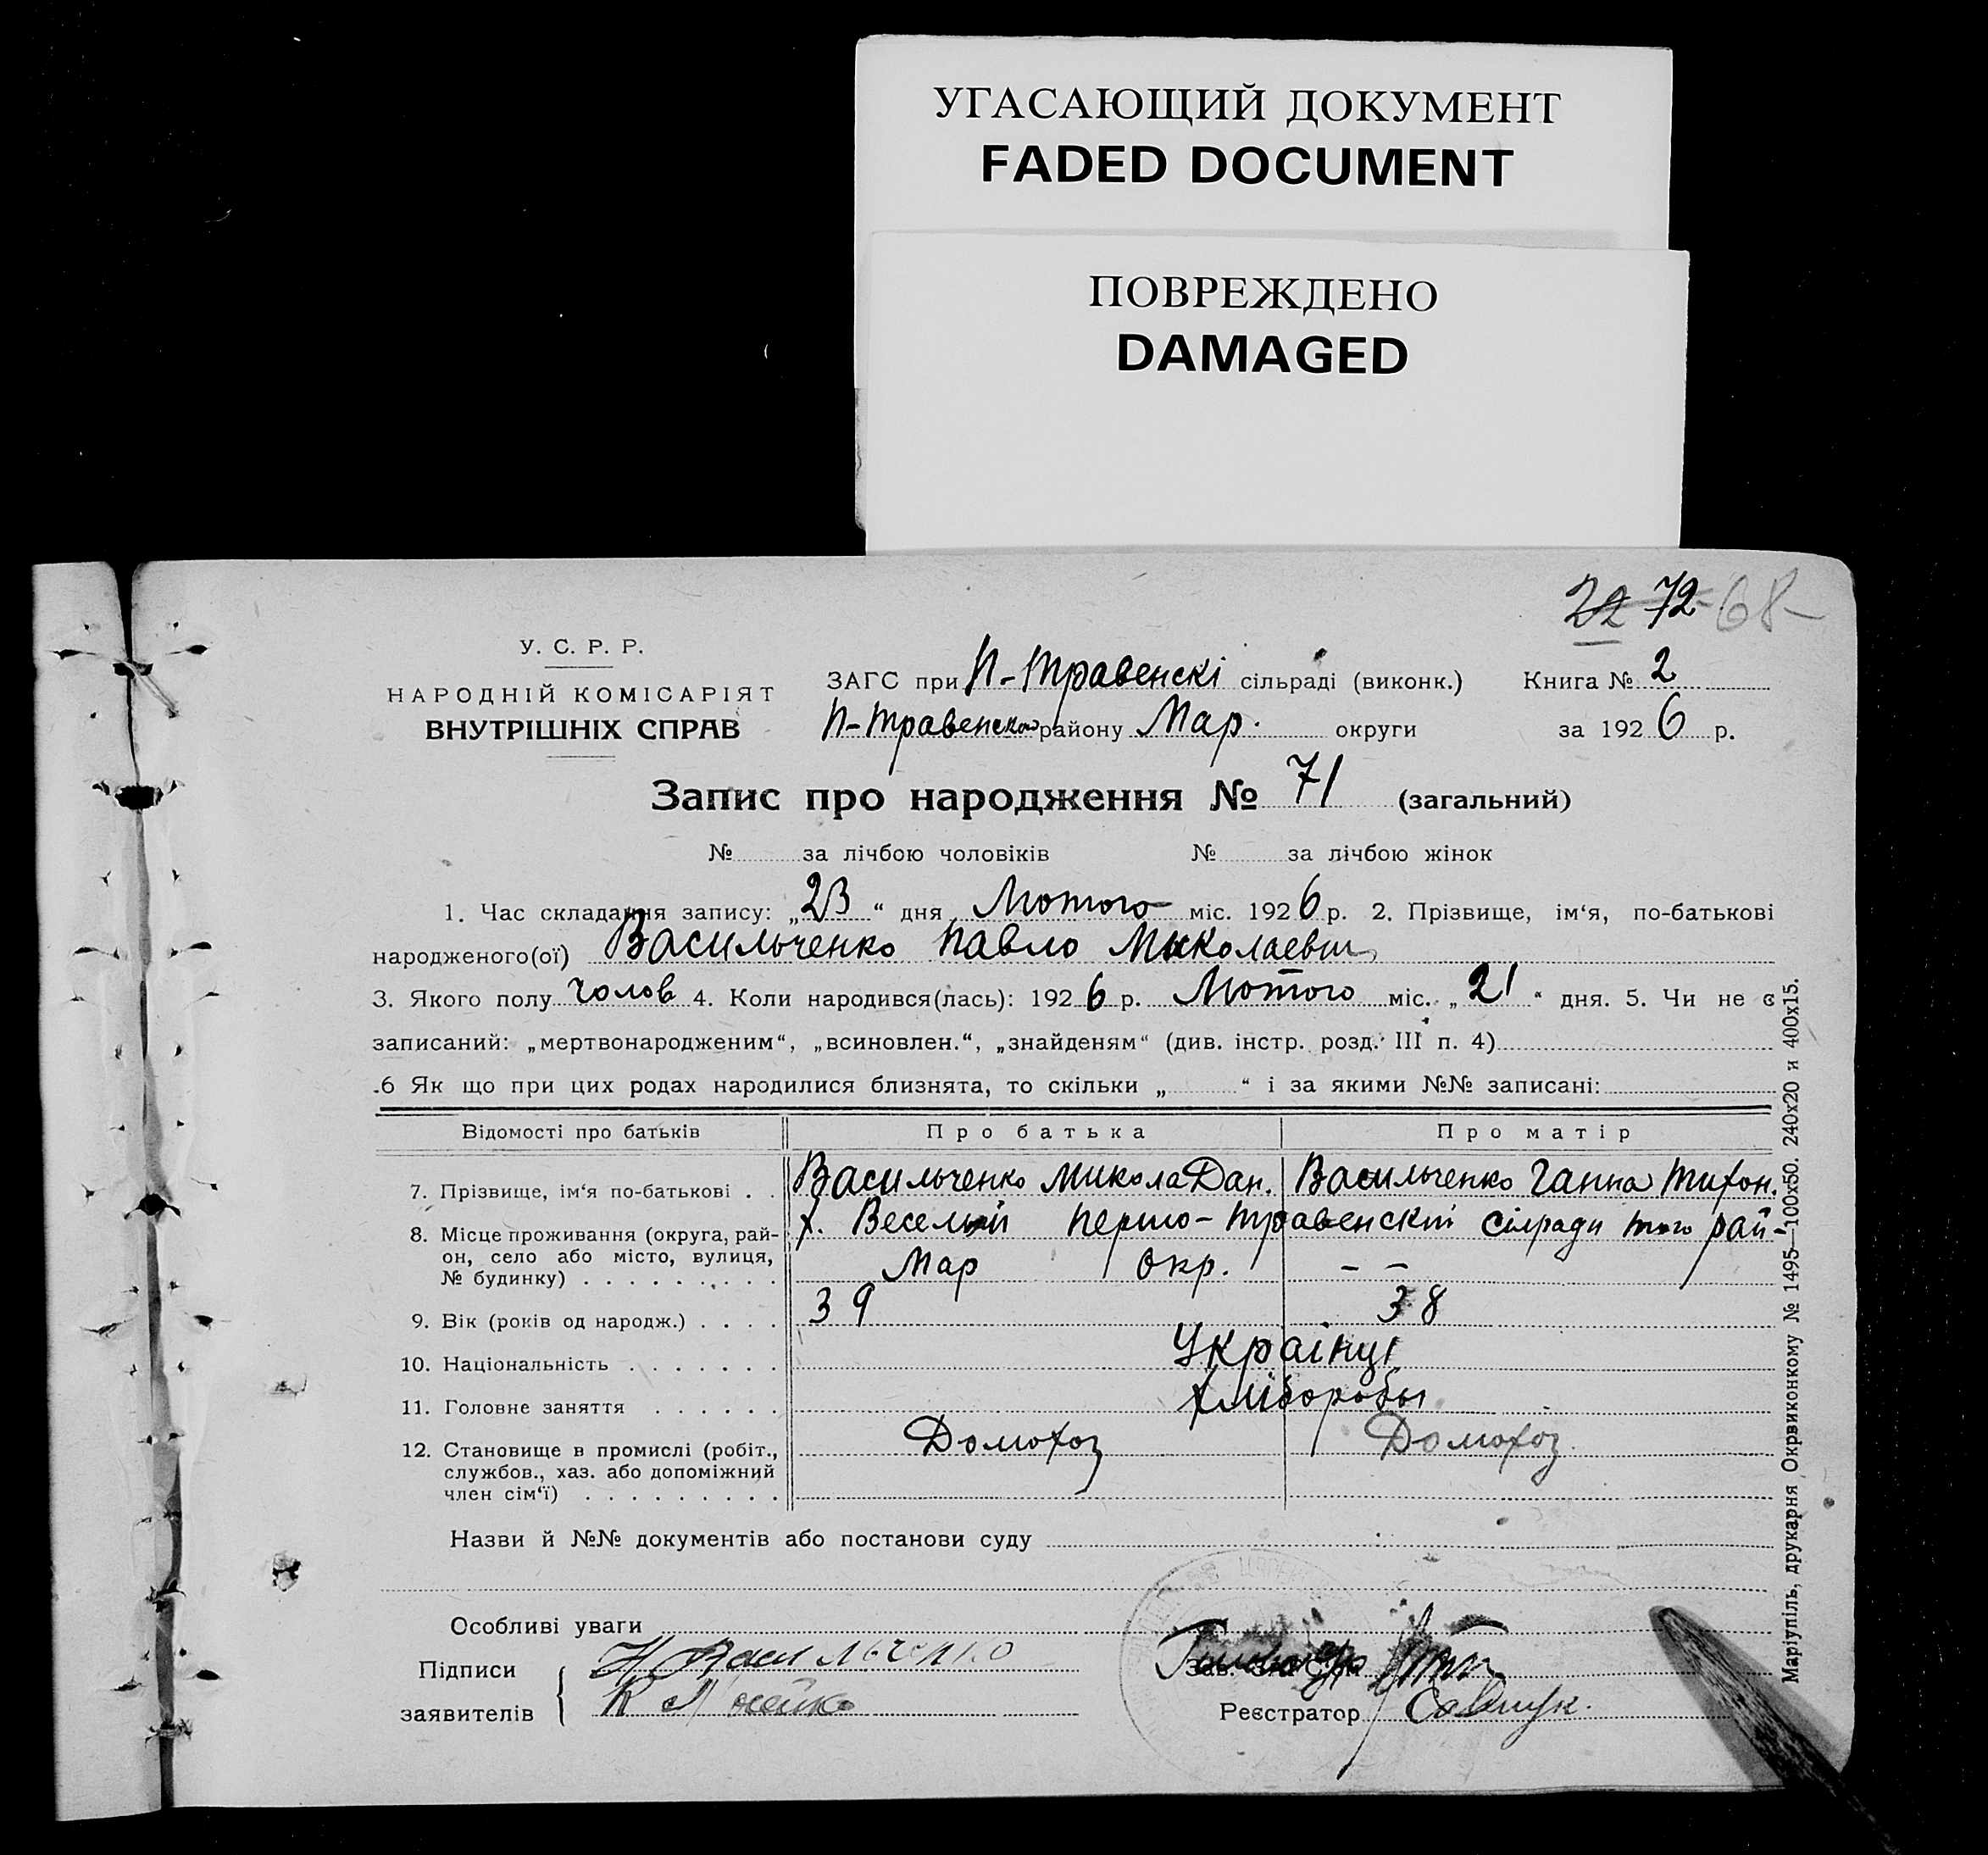 УГАСАЮЩИЙ ДОКУМЕНТ
FADED DOCUMENT
ПОВРЕЖДЕНО
DAMAGED
22 72 68
У. С. Р. Р.
НАРОДНІЙ КОМІСАРІЯТ
ВНУТРІШНІХ СПРАВ
ЗАГС при П-Травенскі сільраді (виконк.) Книга № 2
П-Травенськ району Мар. округи за 1926 р.
Запис про народження № 71 (загальний)
№ за лічбою чоловіків № за лічбою жінок
1. Час складання запису: „23“ дня Лютого міс. 1926 р. 2. Прізвище, ім‘я, по-батькові
народженого(ої) Васильченко Павло Миколаевич
3. Якого полу чолов 4. Коли народився(лась): 1926 р. Лютого міс. „21“ дня. 5. Чи не є
записаний: „мертвонародженим“, „всиновлен.“, „знайденям“ (див. інстр. розд. III п. 4)
.6 Як що при цих родах народилися близнята, то скільки „ “ і за якими №№ записані:
Відомості про батьків Про батька Про матір
7. Прізвище, ім‘я по-батькові . . Васильченко Микола Дан. Васильченко Ганна Тихон.
8. Місце проживання (округа, рай- х. Веселий Першо-Травенскій Сілради того рай-
он, село або місто, вулиця, Мар Окр. – –
№ будинку) . . . . . . . . .
9. Вік (років од народж.) . . . . 39 38
10. Національність . . . . . . . Українці
11. Головне заняття . . . . . . Хлібороби
12. Становище в промислі (робіт., Домохоз Домохоз.
службов., хаз. або допоміжний
член сім‘ї) . . . . . . . . .
Назви й №№ документів або постанови суду
Особливі уваги
Підписи Н Васильченко
заявителів К
Реєстратор Савчук.
Маріупіль, друкарня Окрвиконкому № 1495—100х50. 240х20 и 400х15.